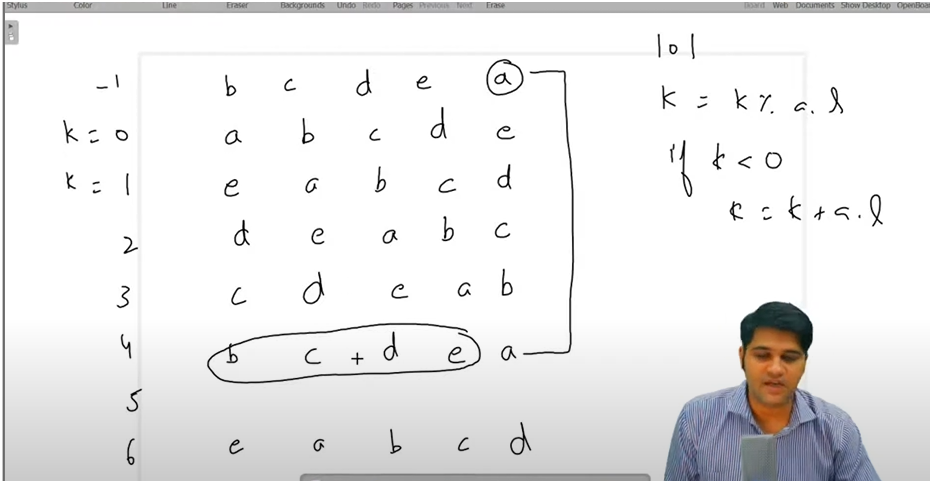 Stylus Color Line Eraser Backgrounds Undo Redo Pages Previous Next Erase Board Web Documents Show Desktop OpenBoa
-1 b c d e a
k = 0 a b c d e
k = 1 e a b c d
2 d e a b c
3 c d e a b
4 b c + d e a
5
6 e a b c d
101
k = k % a.l
if k < 0
k = k + a.l